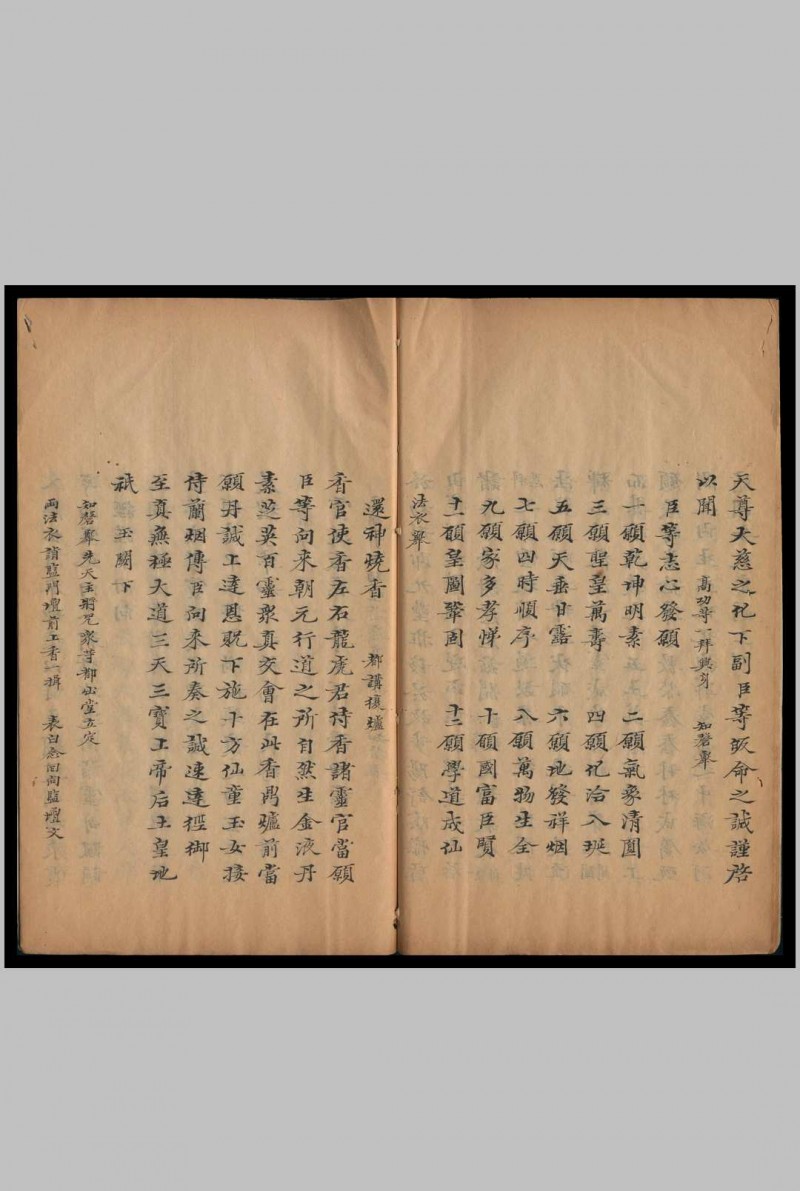 天尊大慈之化下副臣等皈命之誠謹啓
以聞　高功等一拜興身　知磬舉
願　臣等志心發願
一願乾坤明素　二願氣象清圓
三願聖皇萬壽　四願化洽八埏
五願天垂甘露　六願地發祥烟
七願四時順序　八願萬物生全
九願家多孝悌　十願國富臣賢
十一願皇圖鞏固　十二願學道成仙
法衣舉
還神燒香　都講復爐
香官使香左右龍虎君侍香諸靈官當願
臣等向來朝元行道之所自然生金液丹
素芝英百靈衆真交會在此香爐前當
願丹誠上達恩貺下施十方仙童玉女接
侍蘭烟傳臣向來所奏之誠速達徑御
至真無極大道三天三寶上帝后土皇地
祇　玉闕下
知磬舉先天主將咒衆等都出堂立定
兩法衣請監門壇前上香一揖　表白念開啇監壇文